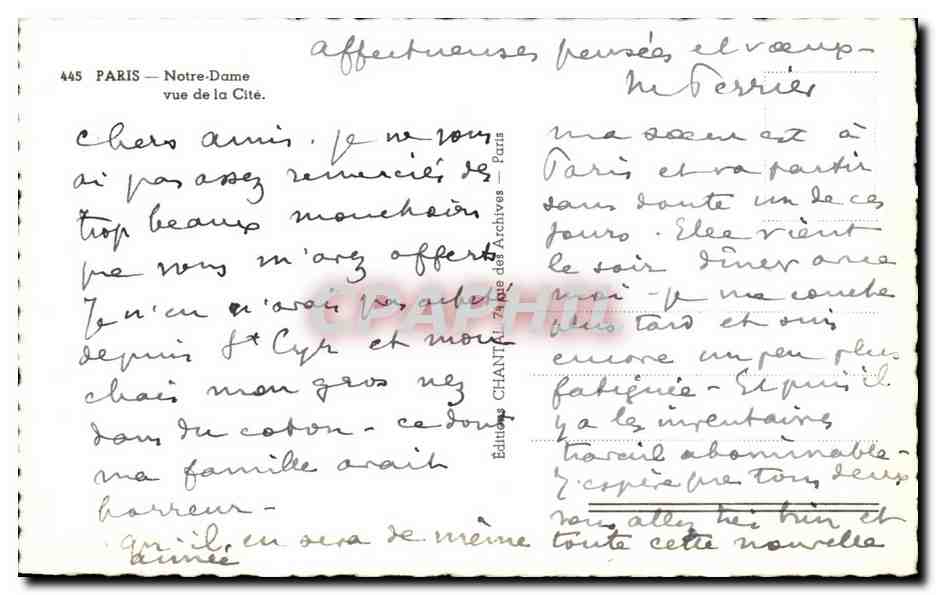 affectueuses pensées et vœux -
M Perrier
445 PARIS — Notre-Dame
vue de la Cité.
chers amis. je ne vous
ai pas assez remerciés des
trop beaux mouchoirs
que vous m'avez offerts
Je n'en n'avais pas acheté
depuis St Cyr et mou
chais mon gros nez
dans du coton - ce dont
ma famille avait
horreur -
Editions CHANTAL 74 rue des Archives — Paris
CPAPHIL
ma sœur est à
Paris et va partir
sans doute un de ces
jours. Elle vient
le soir dîner avec
moi - je me couche
plus tard et suis
encore un peu plus
fatiguée - Et puis il
y a les inventaires
travail abominable -
J'espère que tous deux
vous allez très bien et
qu'il en sera de même toute cette nouvelle
année